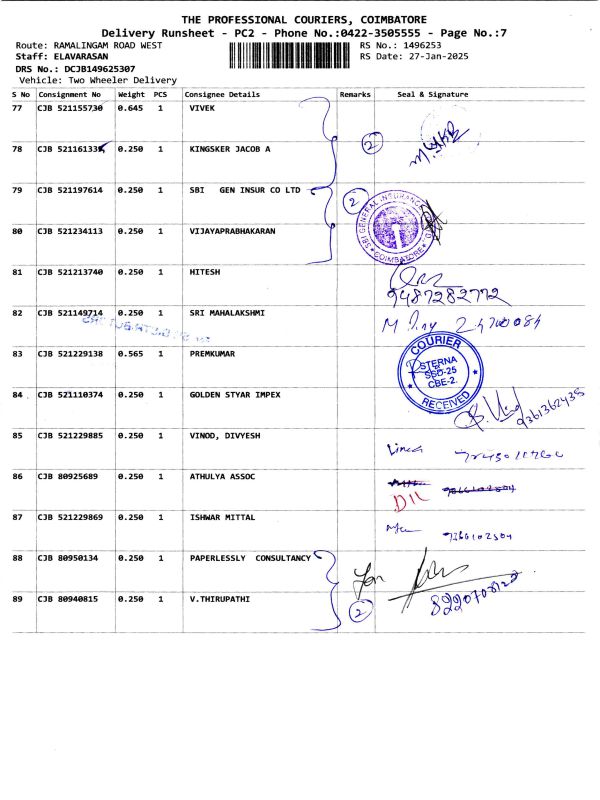 THE PROFESSIONAL COURIERS, COIMBATORE
Delivery Runsheet - PC2 - Phone No.:0422-3505555 - Page No.:7
Route: RAMALINGAM ROAD WEST RS No.: 1496253
Staff: ELAVARASAN RS Date: 27-Jan-2025
DRS No.: DCJB149625307
Vehicle: Two Wheeler Delivery
S No Consignment No Weight PCS Consignee Details Remarks Seal & Signature
77 CJB 521155730 0.645 1 VIVEK
78 CJB 52116133 0.250 1 KINGSKER JACOB A 2
79 CJB 521197614 0.250 1 SBI GEN INSUR CO LTD 2
SBI GENERAL INSURANCE
COIMBATORE
80 CJB 521234113 0.250 1 VIJAYAPRABHAKARAN
81 CJB 521213740 0.250 1 HITESH
9487282772
82 CJB 521149714 0.250 1 SRI MAHALAKSHMI
83 CJB 521229138 0.565 1 PREMKUMAR
COURIER
STERNA
SSD-25
CBE-2.
RECEIVED
84 CJB 521110374 0.250 1 GOLDEN STYAR IMPEX
9361362435
85 CJB 521229885 0.250 1 VINOD, DIVYESH
Vinod
86 CJB 80925689 0.250 1 ATHULYA ASSOC
DIL
87 CJB 521229869 0.250 1 ISHWAR MITTAL
88 CJB 80950134 0.250 1 PAPERLESSLY CONSULTANCY
89 CJB 80940815 0.250 1 V.THIRUPATHI 2